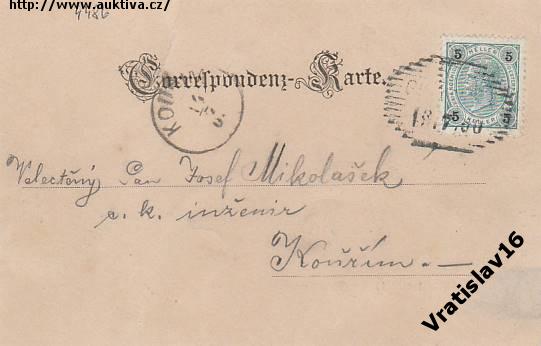 http://www.auktiva.cz/
4486
Correspondenz-Karte.
5 HELLER 5
5 HELLER 5
KOU
18.7.00
Velectěný Pan Josef Mikolášek
c. k. inženir
Kouřim.—
Vratislav16